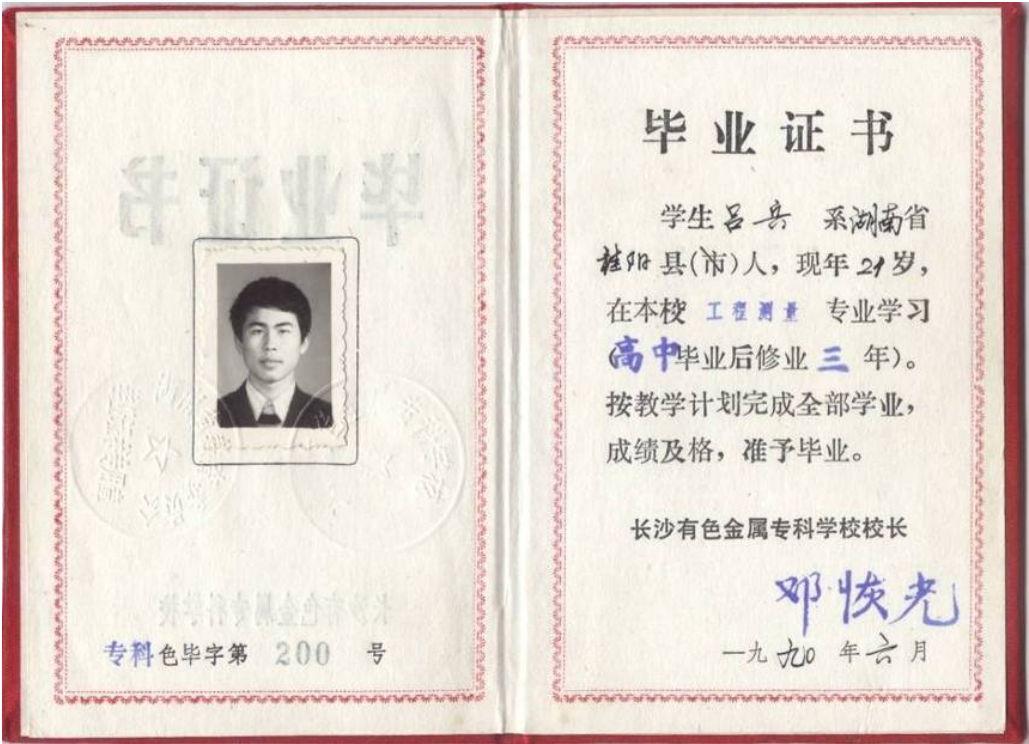 专科色毕字第 200 号
毕业证书
学生吕兵 系湖南省
桂阳县(市)人，现年21岁，
在本校 工程测量 专业学习
(高中毕业后修业三年)。
按教学计划完成全部学业，
成绩及格，准予毕业。
长沙有色金属专科学校校长
邓恢光
一九九0年六月